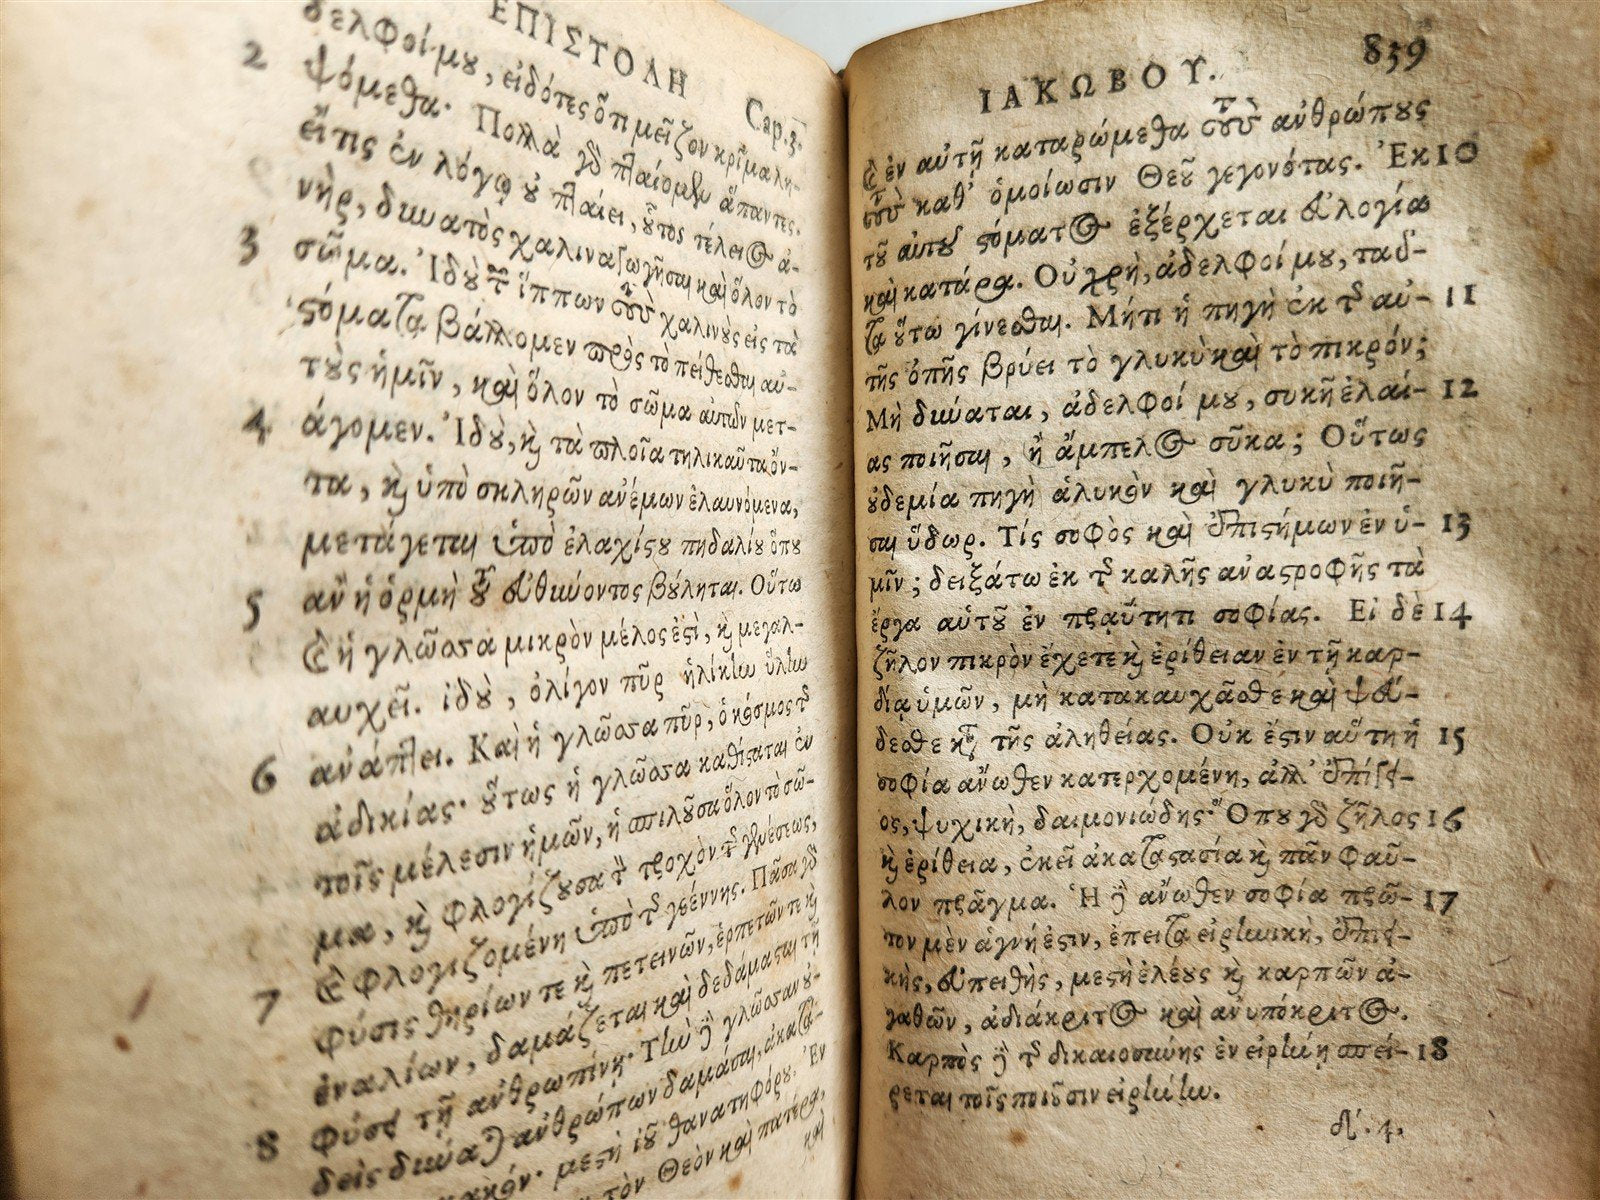 ΕΠΙΣΤΟΛΗ
Cap.3.
δελφοί μου, εἰδότες ὅτι μεῖζον κρῖμα λη-
2 ψόμεθα. Πολλὰ γὰρ πταίομεν ἅπαντες.
εἴ τις ἐν λόγῳ οὐ πταίει, οὗτος τέλειος ἀ-
νὴρ, δυνατὸς χαλιναγωγῆσαι καὶ ὅλον τὸ
3 σῶμα. Ἰδοὺ τῶν ἵππων τοὺς χαλινοὺς εἰς τὰ
στόματα βάλλομεν πρὸς τὸ πείθεσθαι αὐ-
τοὺς ἡμῖν, καὶ ὅλον τὸ σῶμα αὐτῶν μετ-
4 άγομεν. Ἰδοὺ, καὶ τὰ πλοῖα τηλικαῦτα ὄν-
τα, καὶ ὑπὸ σκληρῶν ἀνέμων ἐλαυνόμενα,
μετάγεται ὑπὸ ἐλαχίστου πηδαλίου ὅπου
5 ἂν ἡ ὁρμὴ τοῦ εὐθύνοντος βούληται. Οὕτω
καὶ ἡ γλῶσσα μικρὸν μέλος ἐστὶ, καὶ μεγαλ-
αυχεῖ. ἰδοὺ, ὀλίγον πῦρ ἡλίκην ὕλην
6 ἀνάπτει. Καὶ ἡ γλῶσσα πῦρ, ὁ κόσμος τῆς
ἀδικίας. οὕτως ἡ γλῶσσα καθίσταται ἐν
τοῖς μέλεσιν ἡμῶν, ἡ σπιλοῦσα ὅλον τὸ σῶ-
μα, καὶ φλογίζουσα τὸν τροχὸν τῆς γενέσεως,
καὶ φλογιζομένη ὑπὸ τῆς γεέννης. Πᾶσα γὰρ
7 φύσις θηρίων τε καὶ πετεινῶν, ἑρπετῶν τε καὶ
ἐναλίων, δαμάζεται καὶ δεδάμασται τῇ
φύσει τῇ ἀνθρωπίνῃ. Τὴν δὲ γλῶσσαν οὐ-
8 δεὶς δύναται ἀνθρώπων δαμάσαι, ἀκατά-
κακόν. μεστὴ ἰοῦ θανατηφόρου. Ἐν
τὸν Θεὸν καὶ πατέρα,
καὶ
ΙΑΚΩΒΟΥ. 839
καὶ ἐν αὐτῇ καταρώμεθα τοὺς ἀνθρώπους
τοὺς καθ' ὁμοίωσιν Θεοῦ γεγονότας. Ἐκ 10
τοῦ αὐτοῦ στόματος ἐξέρχεται εὐλογία
καὶ κατάρα. Οὐ χρὴ, ἀδελφοί μου, ταῦ-
τα οὕτω γίνεσθαι. Μήτι ἡ πηγὴ ἐκ τῆς αὐ- 11
τῆς ὀπῆς βρύει τὸ γλυκὺ καὶ τὸ πικρόν;
Μὴ δύναται, ἀδελφοί μου, συκῆ ἐλαί- 12
ας ποιῆσαι, ἢ ἄμπελος σῦκα; Οὕτως
οὐδεμία πηγὴ ἁλυκὸν καὶ γλυκὺ ποιῆ-
σαι ὕδωρ. Τίς σοφὸς καὶ ἐπιστήμων ἐν ὑ- 13
μῖν; δειξάτω ἐκ τῆς καλῆς ἀναστροφῆς τὰ
ἔργα αὑτοῦ ἐν πρᾳΰτητι σοφίας. Εἰ δὲ 14
ζῆλον πικρὸν ἔχετε καὶ ἐρίθειαν ἐν τῇ καρ-
δίᾳ ὑμῶν, μὴ κατακαυχᾶσθε καὶ ψεύ-
δεσθε κατὰ τῆς ἀληθείας. Οὐκ ἔστιν αὕτη ἡ 15
σοφία ἄνωθεν κατερχομένη, ἀλλ' ἐπίγει-
ος, ψυχικὴ, δαιμονιώδης. Ὅπου γὰρ ζῆλος 16
καὶ ἐρίθεια, ἐκεῖ ἀκαταστασία καὶ πᾶν φαῦ-
λον πρᾶγμα. Ἡ δὲ ἄνωθεν σοφία πρῶ- 17
τον μὲν ἁγνή ἐστιν, ἔπειτα εἰρηνικὴ, ἐπιει-
κὴς, εὐπειθὴς, μεστὴ ἐλέους καὶ καρπῶν ἀ-
γαθῶν, ἀδιάκριτος καὶ ἀνυπόκριτος.
Καρπὸς δὲ τῆς δικαιοσύνης ἐν εἰρήνῃ σπεί- 18
ρεται τοῖς ποιοῦσιν εἰρήνην.